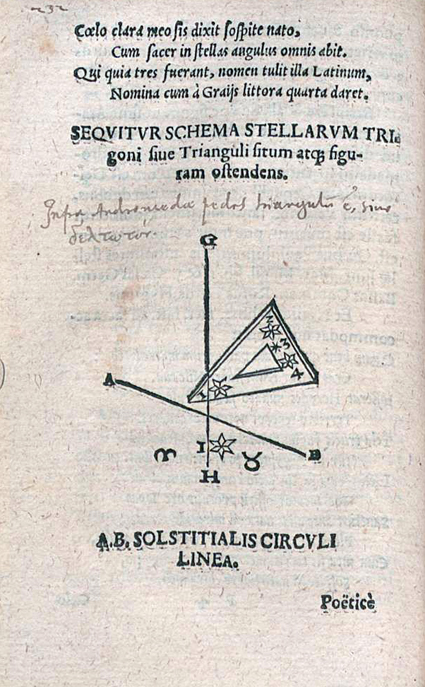 232
Cœlo clara meo sis dixit sospite nato,
Cum sacer in stellas angulus omnis abit.
Qui quia tres fuerant, nomen tulit illa Latinum,
Nomina cum à Graijs littora quarta daret.
SEQVITVR SCHEMA STELLARVM TRI
goni siue Trianguli situm atq; figu-
ram ostendens.
Infra Andromedæ pedes triangulū ē, siue
δελτωτον.
G
2
3
4
A
1
I
B
♈ ♉
H
A.B. SOLSTITIALIS CIRCVLI
LINEA.
Poëticè